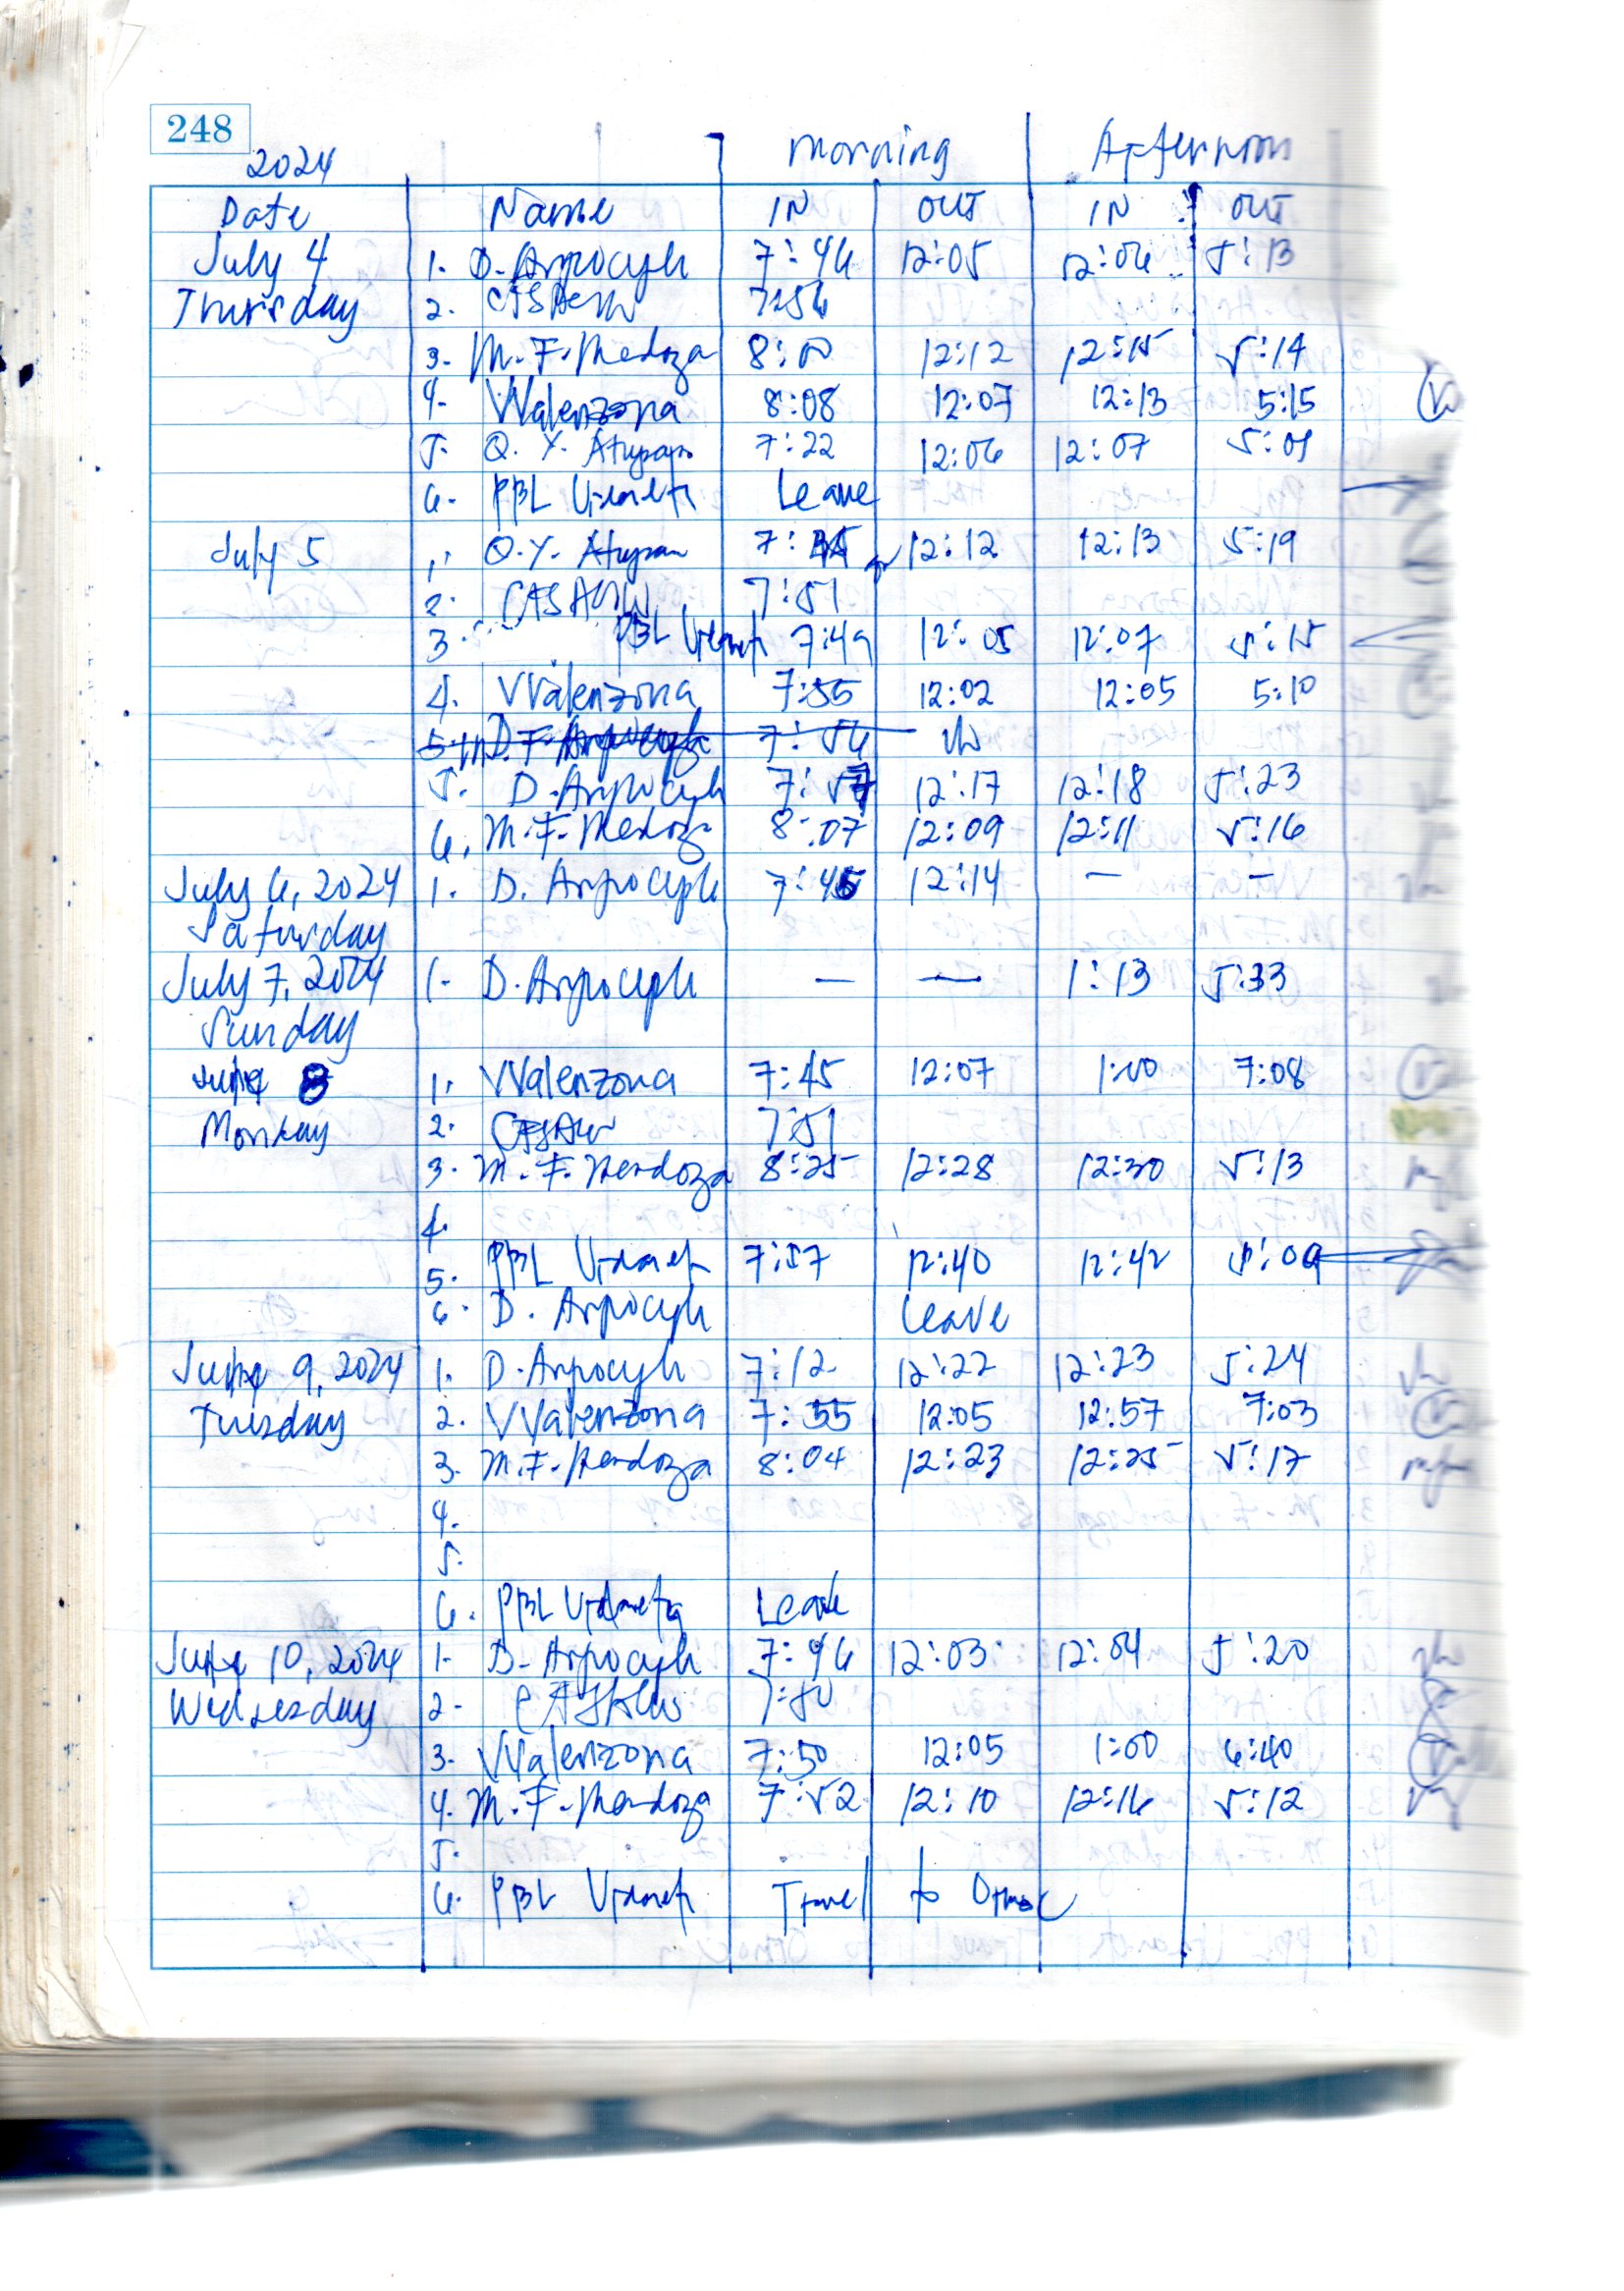 248
2024 morning Afternoon
Date Name IN OUT IN OUT
July 4 1. D. Arpocyh 7:46 12:05 12:06 5:13
Thursday 2. 7:56
3. M. F. Medoza 8:00 12:12 12:15 5:14
4. VValenzona 8:08 12:07 12:13 5:15
5. Q. Y. Atupan 7:22 12:06 12:07 5:01
6. PBL Leave
July 5 1. Q. Y. Atupan 7:45 12:12 12:13 5:19
2. 7:51
3. PBL 7:49 12:05 12:07 5:15
4. VValenzona 7:55 12:02 12:05 5:10
5. 7:56
5. D. Arpocyh 7:57 12:17 12:18 5:23
6. M. F. Mendoza 8:07 12:09 12:11 5:16
July 6, 2024 1. D. Arpocyh 7:45 12:14 — —
Saturday
July 7, 2024 1. D. Arpocyh — — 1:13 5:33
Sunday
8 1. VValenzona 7:45 12:07 1:00 7:08
Monday 2. 7:51
3. M. F. Mendoza 8:25 12:28 12:30 5:13
4.
5. PBL 7:57 12:40 12:42 5:09
6. D. Arpocyh Leave
9, 2024 1. D. Arpocyh 7:12 12:22 12:23 5:24
Tuesday 2. VValenzona 7:55 12:05 12:57 7:03
3. M. F. Mendoza 8:04 12:23 12:25 5:17
4.
5.
6. PBL Leave
10, 2024 1. D. Arpocyh 7:46 12:03 12:04 5:20
Wednesday 2. 7:50
3. VValenzona 7:50 12:05 1:00 6:40
4. M. F. Mendoza 7:52 12:10 12:16 5:12
5.
6. PBL Travel to Ormoc